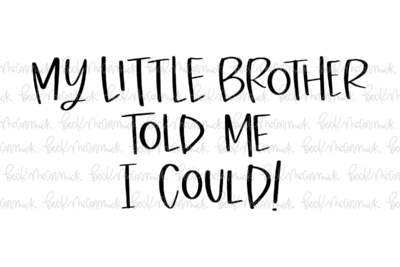 MY LITTLE BROTHER
TOLD ME
I COULD!